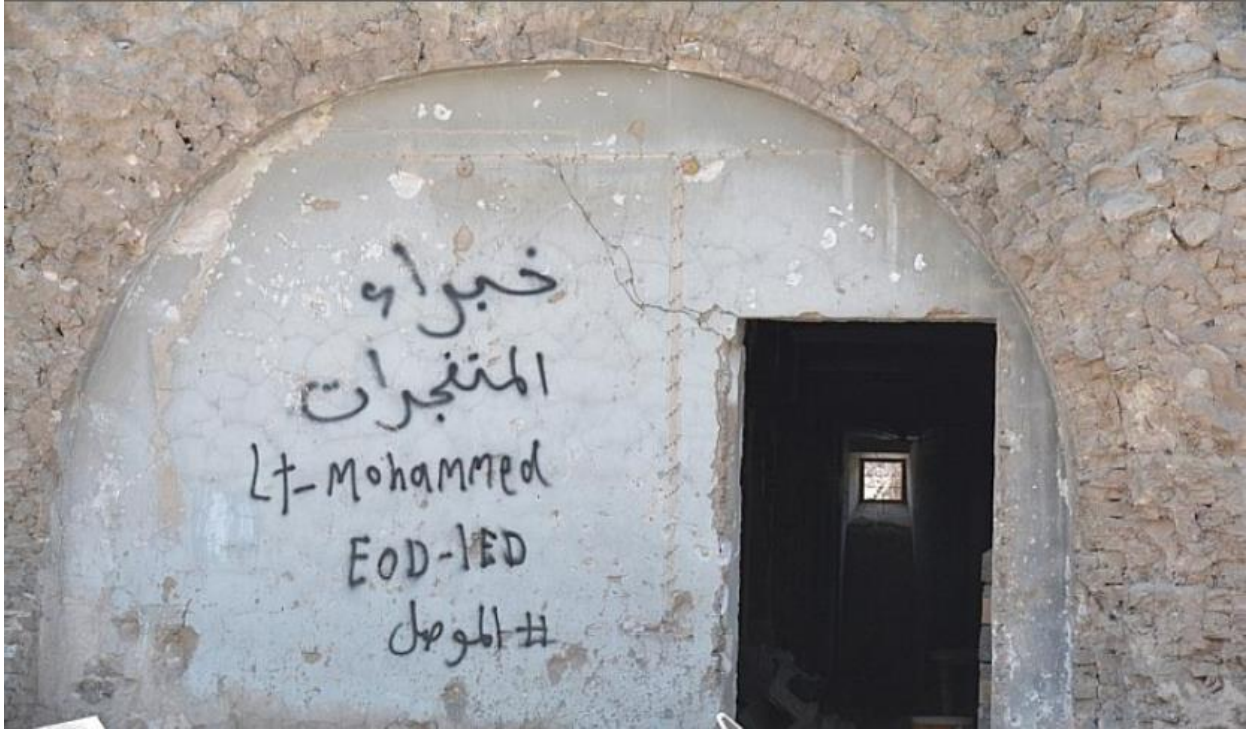 خبراء
المتفجرات
Lt-Mohammed
EOD-IED
#الموصل